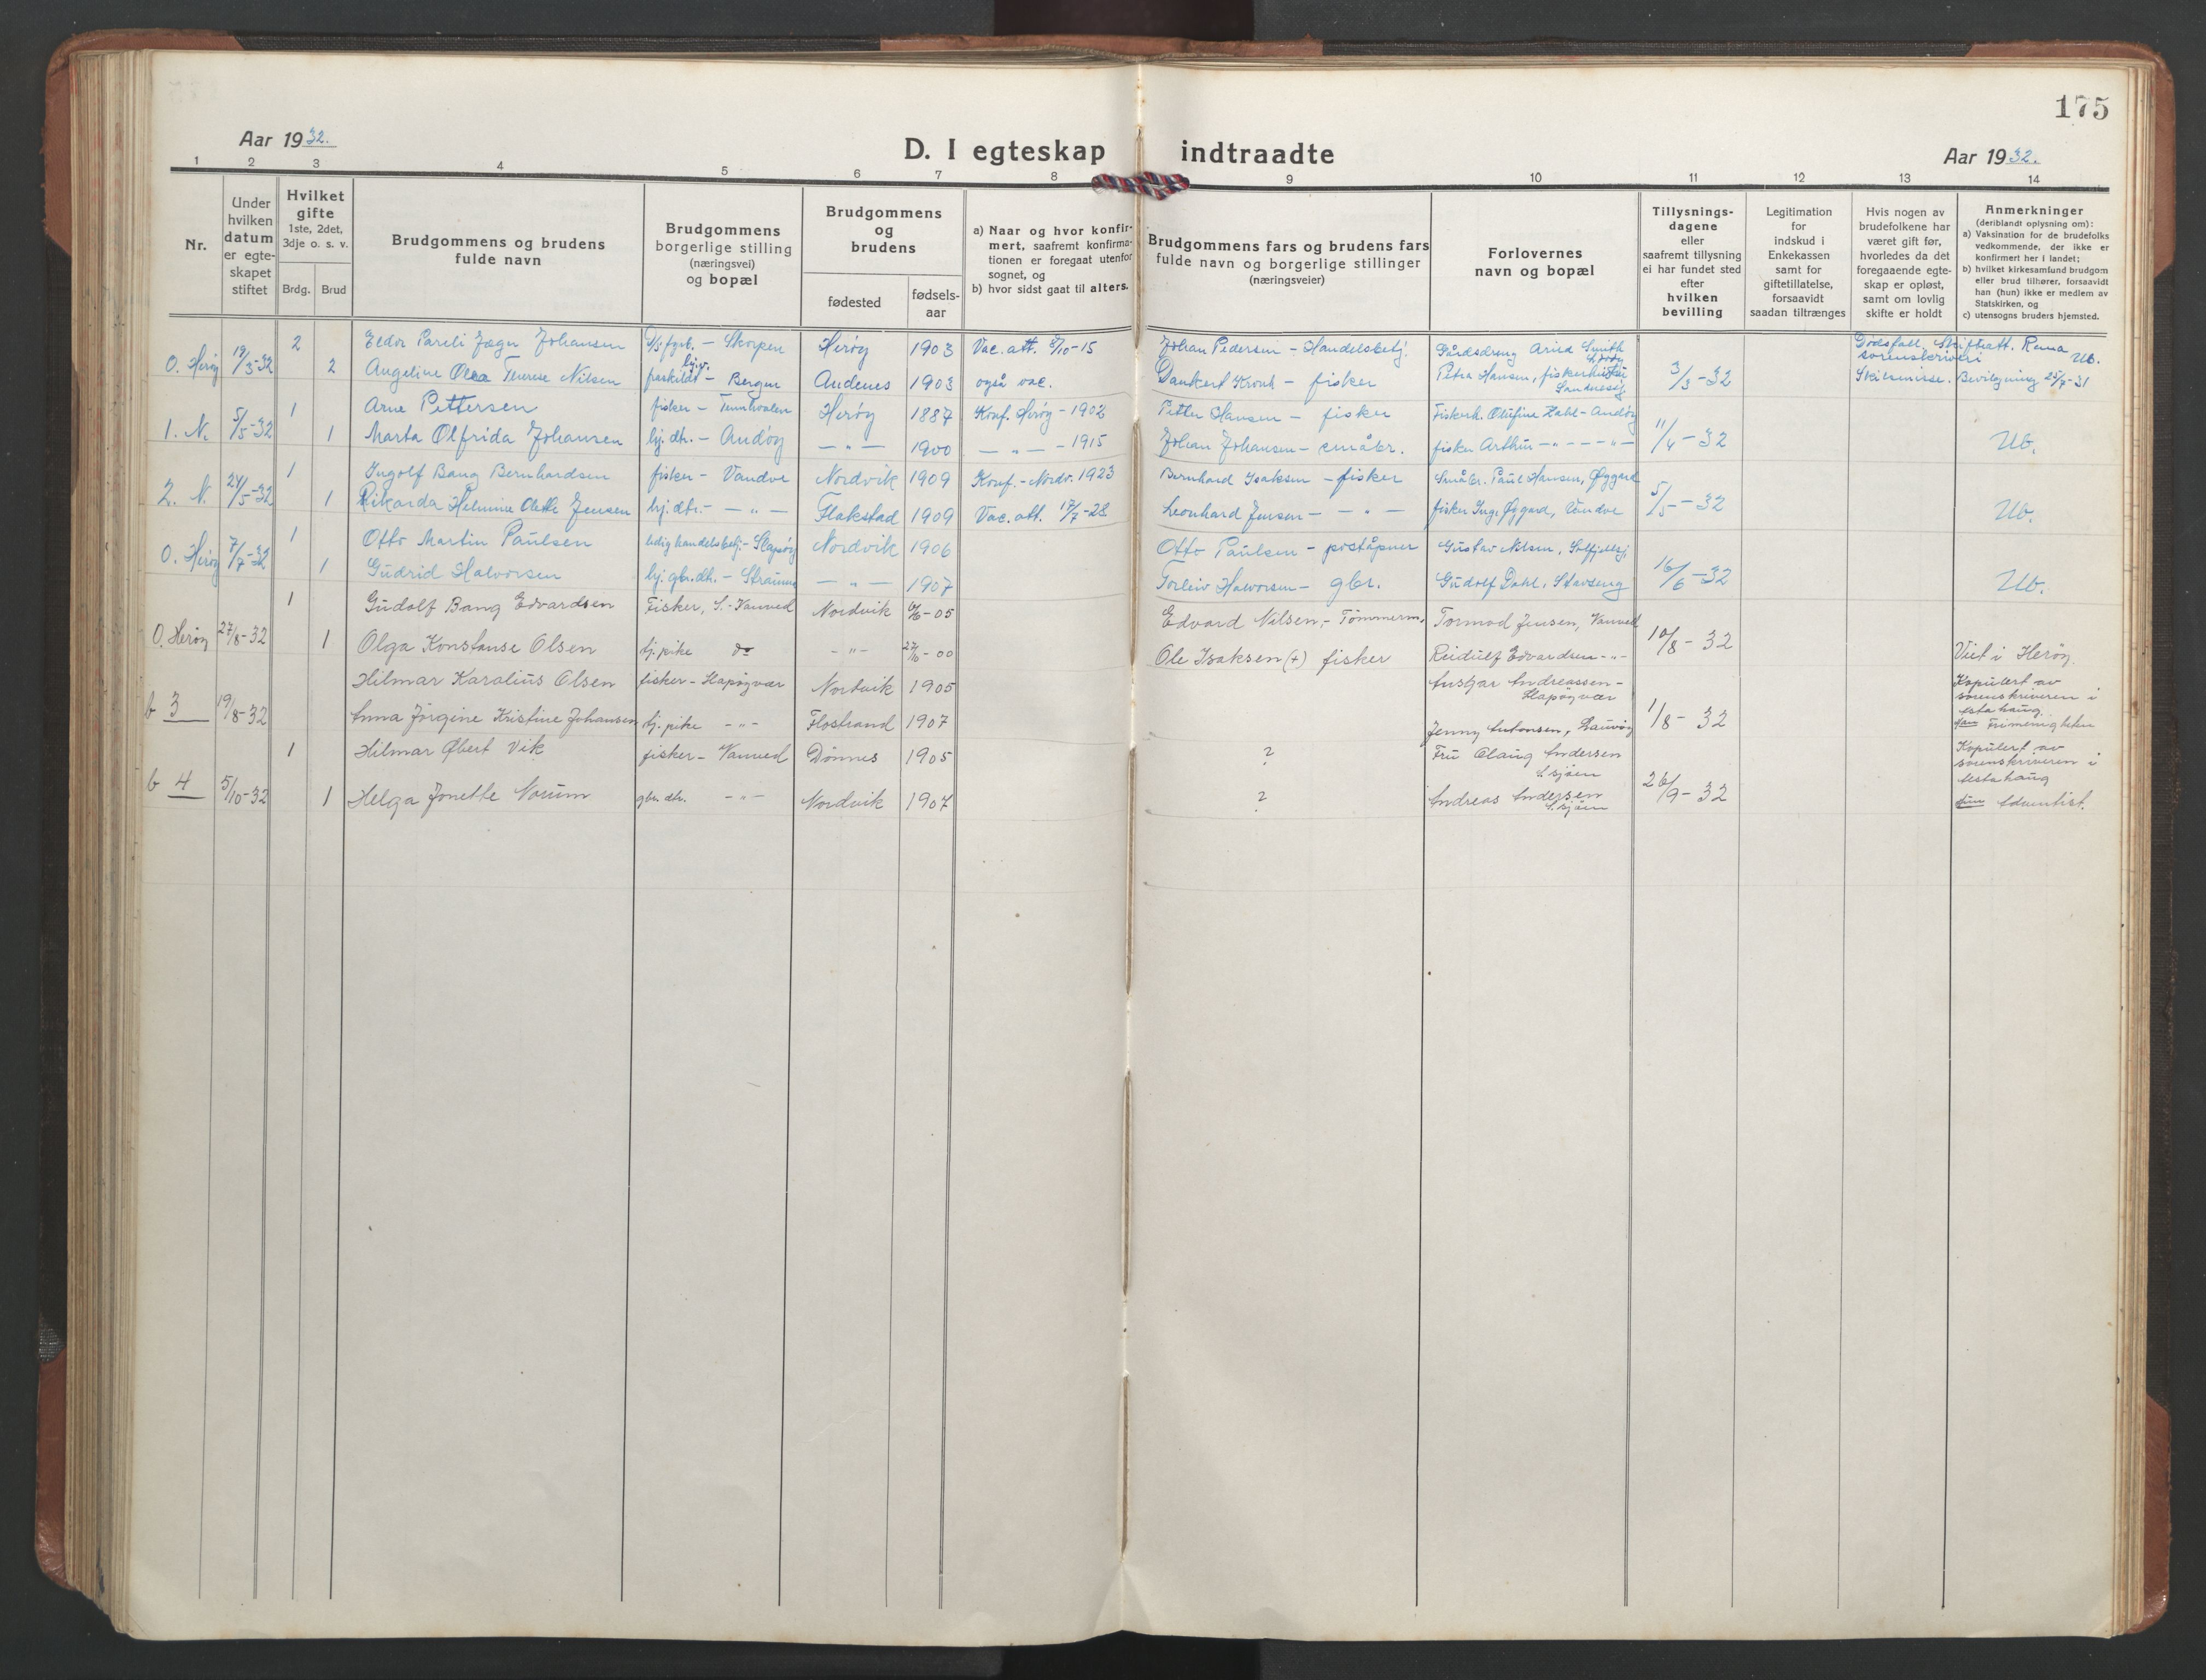 175
Aar 1932.
D. I egteskap indtraadte
Aar 1932.
1 2 3 4 5 6 7 8 9 10 11 12 13 14
Nr.
Under
hvilken
datum
er egte-
skapet
stiftet
Hvilket
gifte
1ste, 2det,
3dje o. s. v.
Brdg. Brud
Brudgommens og brudens
fulde navn
Brudgommens
borgerlige stilling
(næringsvei)
og bopæl
Brudgommens
og
brudens
fødested
fødsels-
aar
a) Naar og hvor konfir-
mert, saafremt konfirma-
tionen er foregaat utenfor
sognet, og
b) hvor sidst gaat til alters.
Brudgommens fars og brudens fars
fulde navn og borgerlige stillinger
(næringsveier)
Forlovernes
navn og bopæl
Tillysnings-
dagene
eller
saafremt tillysning
ei har fundet sted
efter
hvilken
bevilling
Legitimation
for
indskud i
Enkekassen
samt for
giftetillatelse,
forsaavidt
saadan tiltrænges
Hvis nogen av
brudefolkene har
været gift før,
hvorledes da det
foregaaende egte-
skap er opløst,
samt om lovlig
skifte er holdt
Anmerkninger
(deriblandt oplysning om):
a) Vaksination for de brudefolks
vedkommende, der ikke er
konfirmert her i landet;
b) hvilket kirkesamfund brudgom
eller brud tilhører, forsaavidt
han (hun) ikke er medlem av
Statskirken, og
c) utensogns bruders hjemsted.
2 Eldor Pareli Jæger Johansen – Skorpen Herøy 1903 Vac. att. 8/10-15 Johan Pedersen – Handelsbetj. Gårdsdreng Arvid Smith Dødsfall. Skifteatt. Rana
sorenskriveri Ub.
0. Herøy 19/3-32 2 Angeline Olea Therese Nilsen fraskildt – Bergen Andenes 1903 også vac. Dankert Kronh – fisker Petra Hansen, 3/3-32 Skilsmisse. Bevilgning 25/7-31
1 Arne Pettersen fisker – Herøy 1887 Konf. Herøy – 1902 Petter Hansen – fisker Fiskerh. Olufine Dahl – Andøy
1. N. 5/5-32 1 Marta Olfrida Johansen hj. dtr. – Andøy — " — 1900 — " — – 1915 Johan Johansen – småbr. fisker Arthur — " — — " — 11/4-32 Ub.
1 Ingolf Bang Bernhardsen fisker – Vandve Nordvik 1909 Konf. – Nordv. 1923 Bernhard Isaksen – fisker Småbr. Paul Hansen, Øygard
2. N. 24/5-32 1 Rikarda Helmine Olette Jensen hj. dtr. – — " — Flakstad 1909 Vac. att. 17/7-28 Leonhard Jensen – — " — fisker Inge Øygard, Vandve 5/5-32 Ub.
1 Otto Martin Paulsen ledig handelsbetj. – Slapøy Nordvik 1906 Otto Paulsen – poståpner Gustav Nilsen,
0. Herøy 7/7-32 1 Gudrid Halvorsen hj. gbr. dtr. – Straumen — " — 1907 Torleiv Halvorsen – gbr. Gudolf Dahl, Stavseng 16/6-32 Ub.
1 Gudolf Bang Edvardsen Fisker, S.-Vanved Nordvik 6/6-05 Edvard Nilsen, – Tømmerm. Tormod Jensen, Vanved
0. Herøy 27/8-32 1 Olga Konstanse Olsen tj. pike do - " - 27/10-00 Ole Isaksen (+) fisker Reidulf Edvardsen - " - 10/8-32 Viet i Herøy.
Hilmar Karolius Olsen fisker – Slapøyvær Nordvik 1905 Ansgar Andreassen –
Slapøyvær Kopulert av
sorenskriveren i
Alstahaug
b 3 19/8-32 Anna Jørgine Kristine Johansen tj. pike - " - Flostrand 1907 Jenny Antonsen, 1/8-32 Frimenigheten
1 Hilmar Øbert Vik fisker – Vanved Dønnes 1905 ? Fru Olaug Andersen
S.sjøen Kopulert av
sorenskriveren i
Alstahaug
b 4 5/10-32 1 Helga Jonette Norum gbr. dtr. - " - Nordvik 1907 ? Andreas Andersen
S.sjøen 26/9-32 hun Adventist.